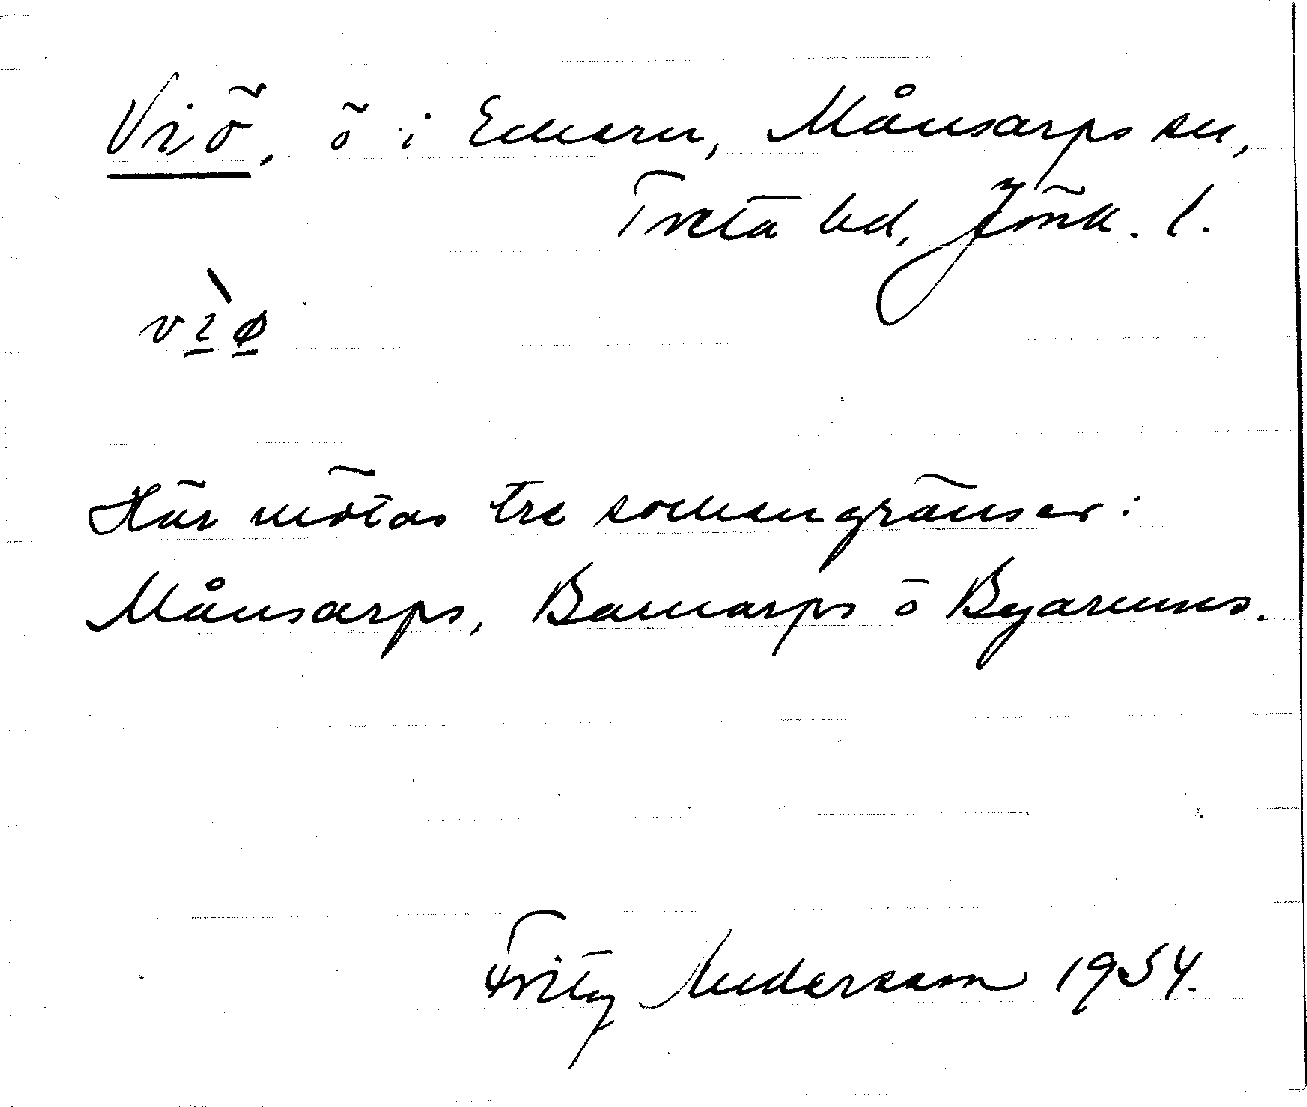 Viö, ö i Emern, Månsarps sn,
Tveta hd, Jönk. l.
vìø
Här mötas tre sockengränser:
Månsarps, Barnarps o Byarums.
Fritz Andersson 1954.